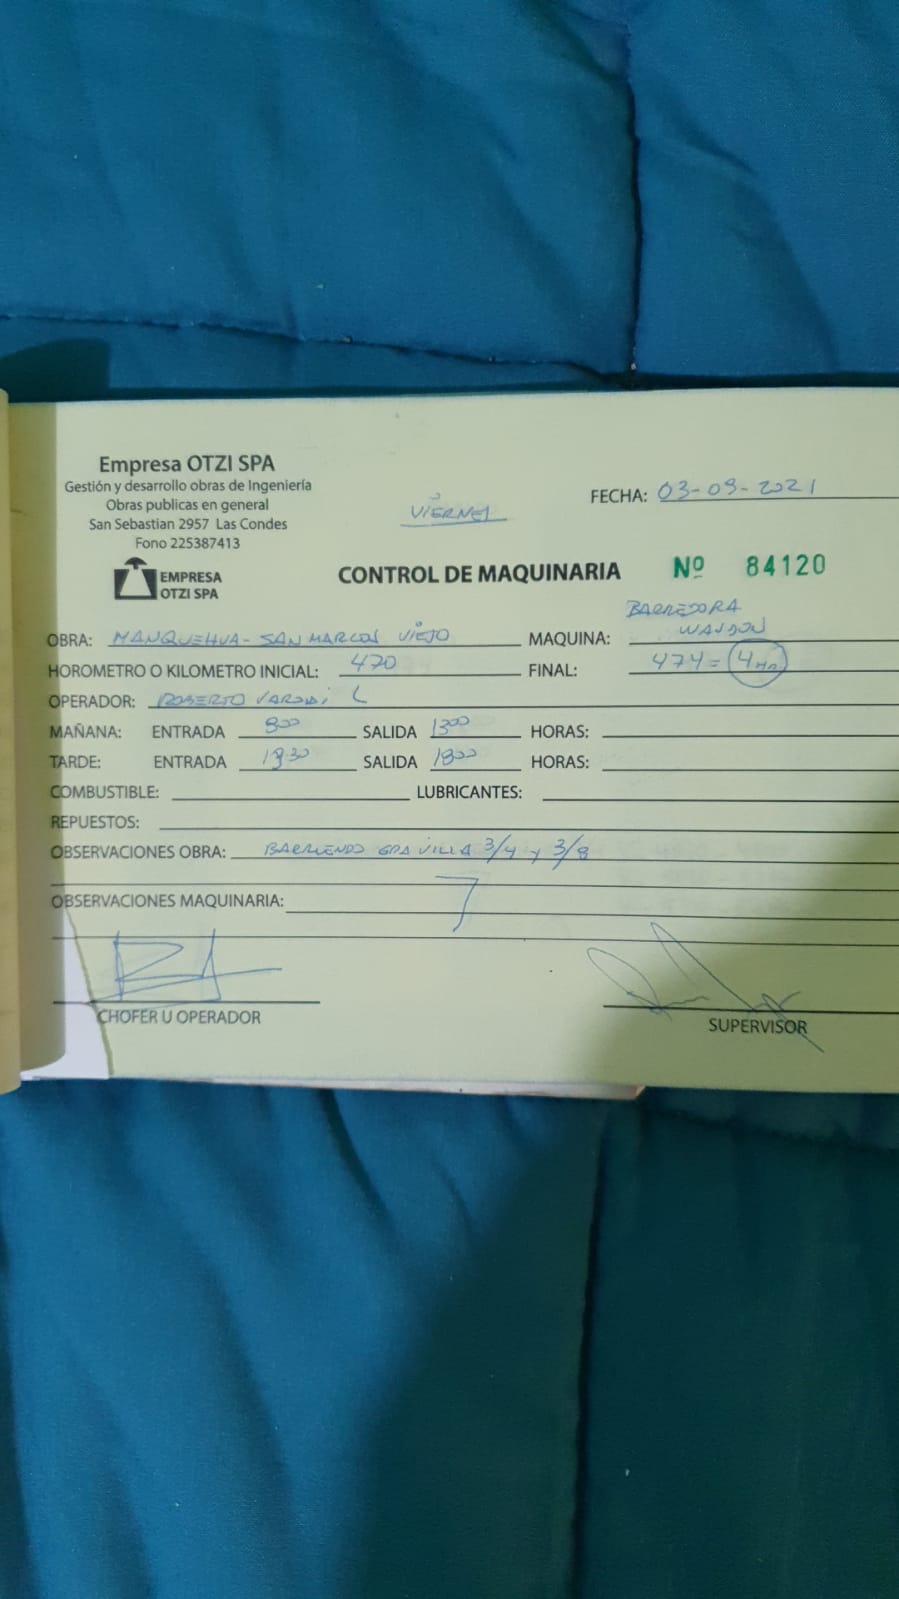 Empresa OTZI SPA
Gestión y desarrollo obras de Ingeniería
Obras publicas en general
San Sebastian 2957 Las Condes
Fono 225387413
EMPRESA
OTZI SPA
VIERNES
FECHA: 03-09-2021
CONTROL DE MAQUINARIA Nº 84120
OBRA: MANQUEHUA - SAN MARCOS VIEJO MAQUINA: BARREDORA
WALDON
HOROMETRO O KILOMETRO INICIAL: 470 FINAL: 474 = 4 HR.
OPERADOR: ROBERTO L
MAÑANA: ENTRADA 800 SALIDA 1300 HORAS:
TARDE: ENTRADA SALIDA 1800 HORAS:
COMBUSTIBLE: LUBRICANTES:
REPUESTOS:
OBSERVACIONES OBRA: BARRIENDO GRAVILLA 3/4 y 3/8
OBSERVACIONES MAQUINARIA:
CHOFER U OPERADOR
SUPERVISOR